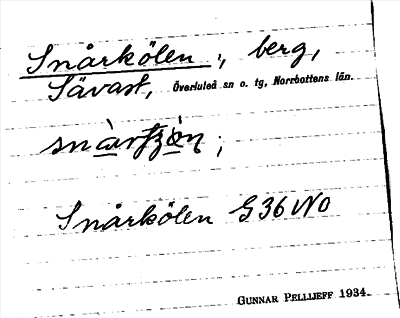 Snårkölen, berg,
Sävast, Överluleå sn o. tg, Norrbottens län.
Snårkölen G 36 NO
GUNNAR PELLIJEFF 1934.